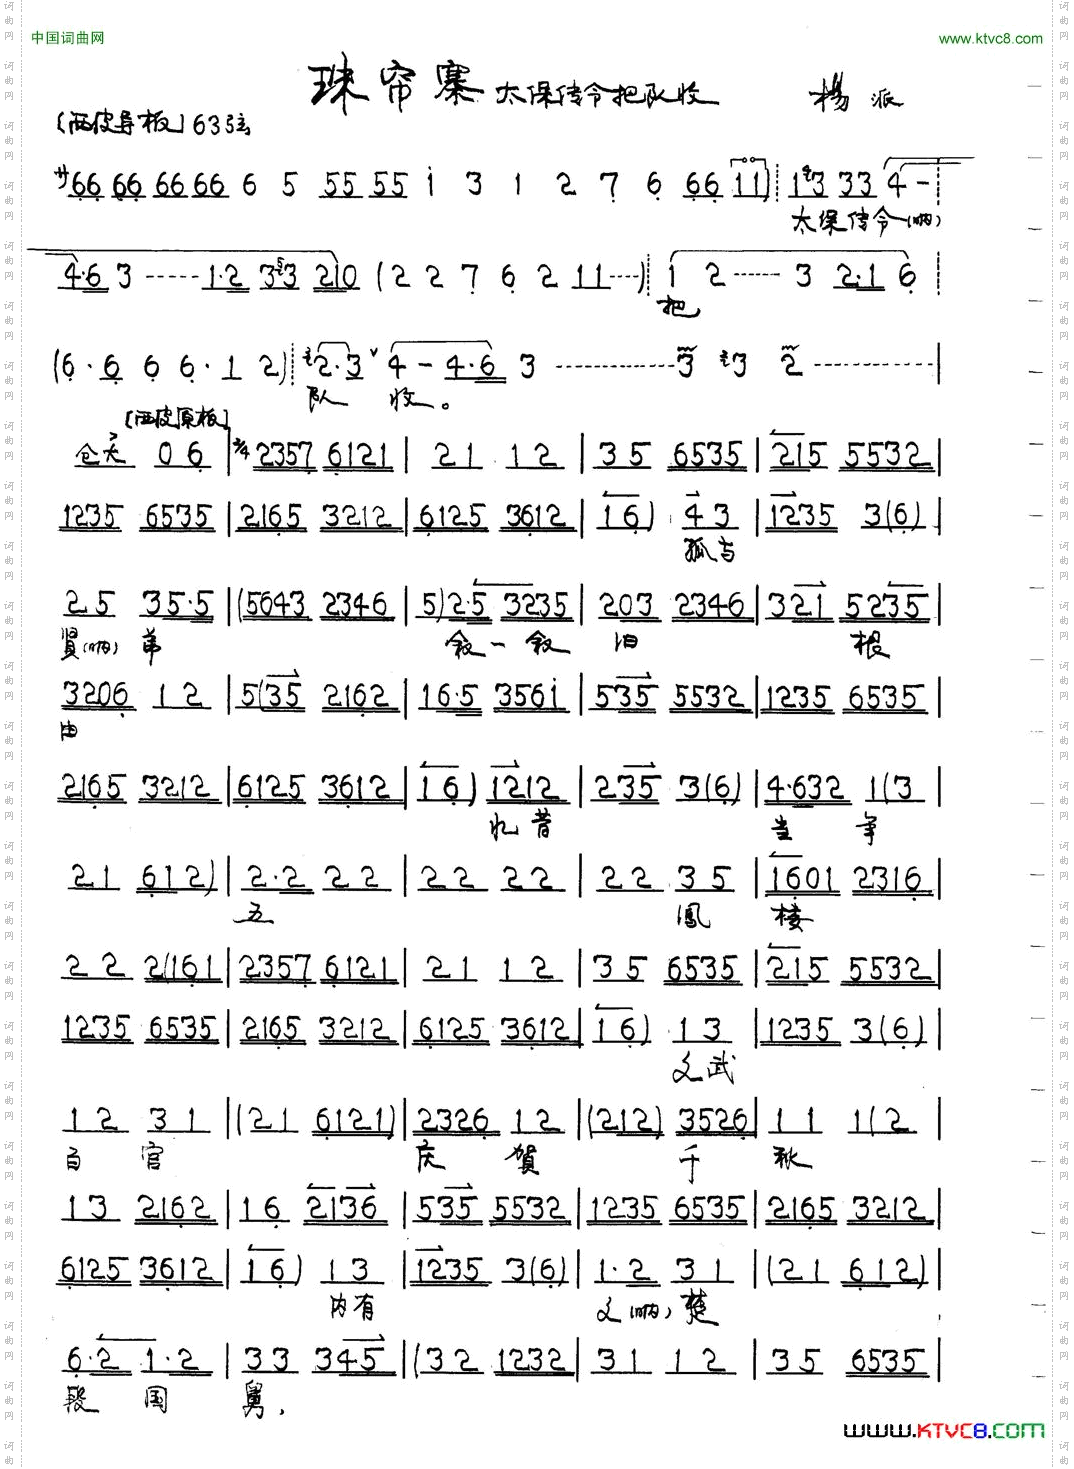 中国词曲网
www.ktvc8.com
珠帘寨 太保传令把队收 杨派
[西皮导板] 63弦
サ 66 66 66 66 6 5 55 55 i 3 1 2 7 6 66 11) 13 33 4 -
太保传令(呐)
4·6 3 ------ 1·2 3 3 210 (2 2 7 6 2 11 ----) 1 2 ---- 3 2·1 6
把
(6·6 6 6·1 2) 2·3 4 - 4·6 3 ------ 3 3 2 ------ |
队 收。
[西皮原板]
仓 才 0 6 | 2/4 2357 6121 | 21 12 | 35 6535 | 215 5532 |
1235 6535 | 2165 3212 | 6125 3612 | 16) 43 | 1235 3(6) |
孤与
25 35·5 | (5643 2346 | 5)2·5 3235 | 203 2346 | 321 5235 |
贤(呐) 弟 叙一叙 旧 根
3206 12 | 5(35 2162 | 16·5 3561 | 535 5532 | 1235 6535 |
由
2165 3212 | 6125 3612 | 16) 1212 | 235 3(6) | 4·632 1(3 |
忆昔 当 年
21 612) | 2·2 22 | 22 22 | 22 35 | 1601 2316 |
五 凤 楼
22 2(161 | 2357 6121 | 21 12 | 35 6535 | 215 5532 |
1235 6535 | 2165 3212 | 6125 3612 | 16) 13 | 1235 3(6) |
文武
12 31 | (21 6121) | 2326 12 | (212) 3526 | 11 1(2 |
百 官 庆 贺 千 秋
13 2162 | 16 2136 | 535 5532 | 1235 6535 | 2165 3212 |
6125 3612 | 16) 13 | 1235 3(6) | 1·2 31 | (21 612) |
内有 文(呐)楚
6·2 1·2 | 33 345 | (32 1232 | 31 12 | 35 6535 |
段 国 舅,
www.KTVC8.com